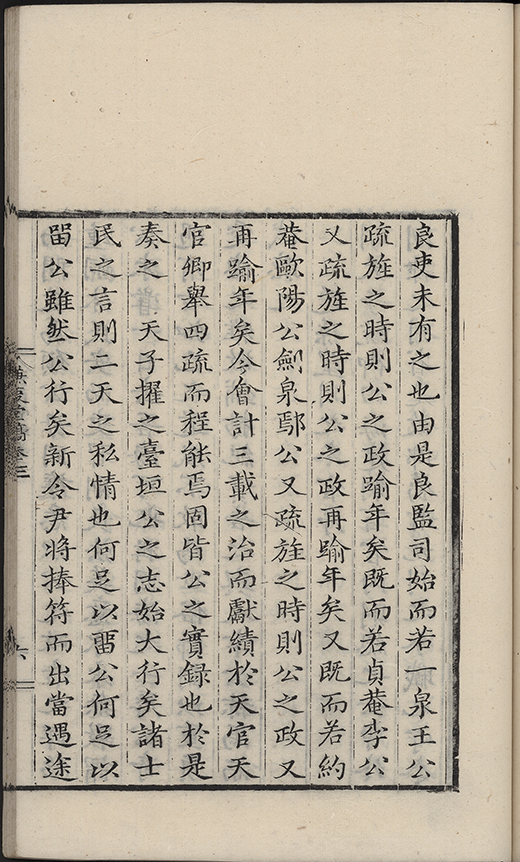 良吏未有之也由是良監司始而若一泉王公
疏旌之時則公之政踰年矣既而若貞菴李公
又疏旌之時則公之政再踰年矣又既而若約
菴歐陽公劍泉鄢公又疏旌之時則公之政又
再踰年矣今會計三載之治而獻績於天官天
官卿舉四疏而程能焉固皆公之實録也於是
奏之 天子擢之臺垣公之志始大行矣諸士
民之言則二天之私情也何足以畱公何足以
畱公雖然公行矣新令尹將捧符而出當遇途
堂 三
六